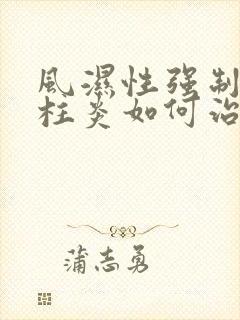 風濕性强制
柱炎如何治
蒲志勇